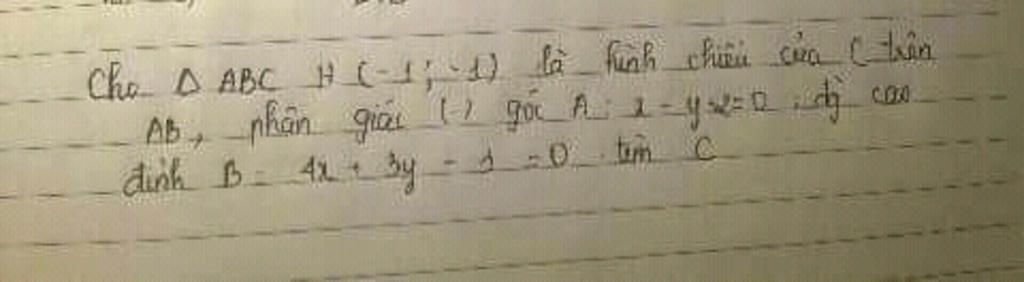 Cho Δ ABC H (-1; -1) là hình chiếu của C trên
AB, phân giác (-) góc A: x - y+2=0. đg cao
đỉnh B: 4x + 3y - 1 =0. tìm C